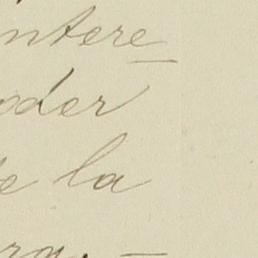 ntere
oder
e la
ra. —